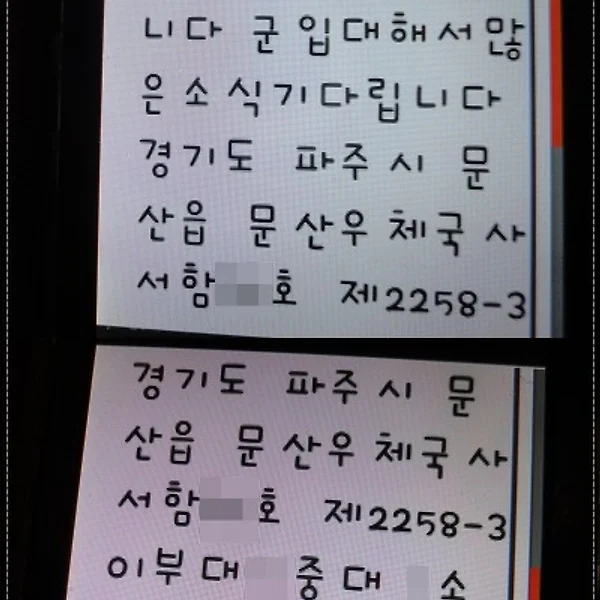 니다 군 입대해서많
은소식기다립니다
경기도 파주시 문
산읍 문산우체국사
서함 호 제2258-3
경기도 파주시 문
산읍 문산우체국사
서함 호 제2258-3
이부대 중대 소